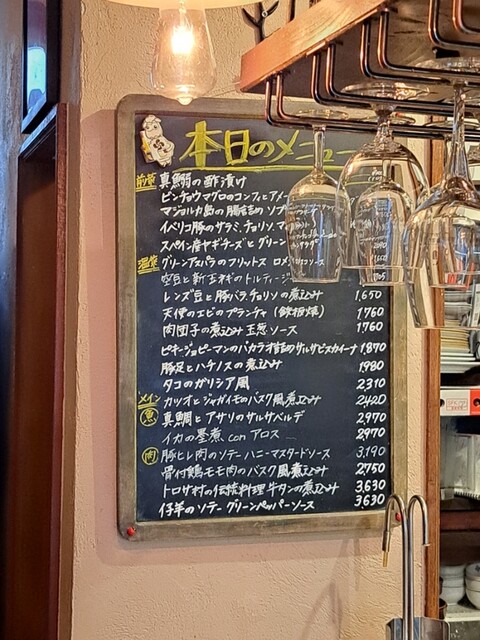 本日のメニュー
前菜 真鰯の酢漬け
ビンチョウマグロのコンフィとアメ
マジョルカ島の腸詰の ソブ
イベリコ豚のサラミ、チョリソ、マ
スペイン産ヤギチーズとグリーン
温菜 グリーンアスパラのフリットス ロメ ソース
空豆と新玉ネギのトルティージ
レンズ豆と豚バラ、チョリソの煮込み 1,650
天使のエビのプランチャ (鉄板焼) 1,760
肉団子の煮込み 玉葱ソース 1,760
ピキージョピーマンのバカラオ詰めサルサビスカイーナ 1,870
豚足とハチノスの煮込み 1,980
タコのガリシア風 2,310
メイン カツオとジャガイモのバスク風煮込み 2,420
魚 真鯛とアサリのサルサベルデ 2,970
イカの墨煮 con アロス 2,970
肉 豚ヒレ肉のソテー ハニーマスタードソース 3,190
骨付鶏モモ肉のバスク風煮込み 2,750
トロサ村の伝統料理 牛タンの煮込み 3,630
仔羊のソテー グリーンペッパーソース 3,630